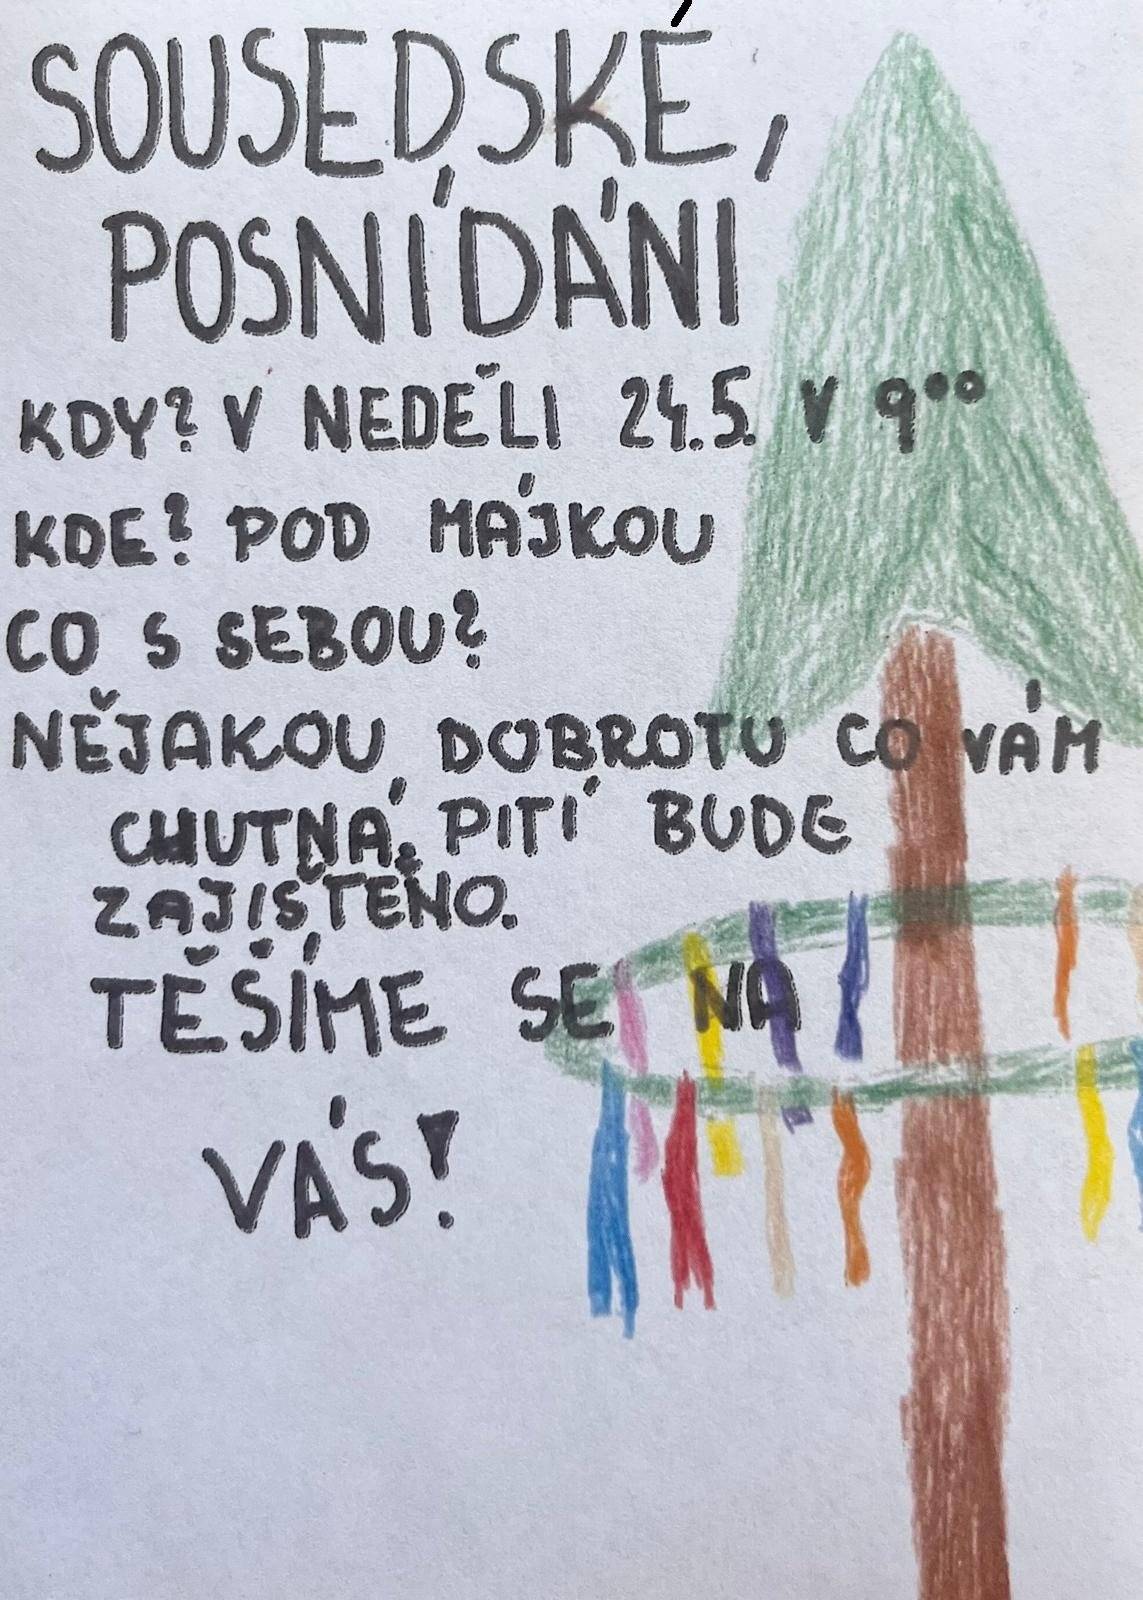 SOUSEDSKÉ
POSNÍDÁNÍ
KDY? V NEDĚLI 24.5. V 9⁰⁰
KDE? POD MÁJKOU
CO S SEBOU?
NĚJAKOU DOBROTU CO VÁM
CHUTNÁ. PITÍ BUDE
ZAJIŠTĚNO.
TĚŠÍME SE NA
VÁS!